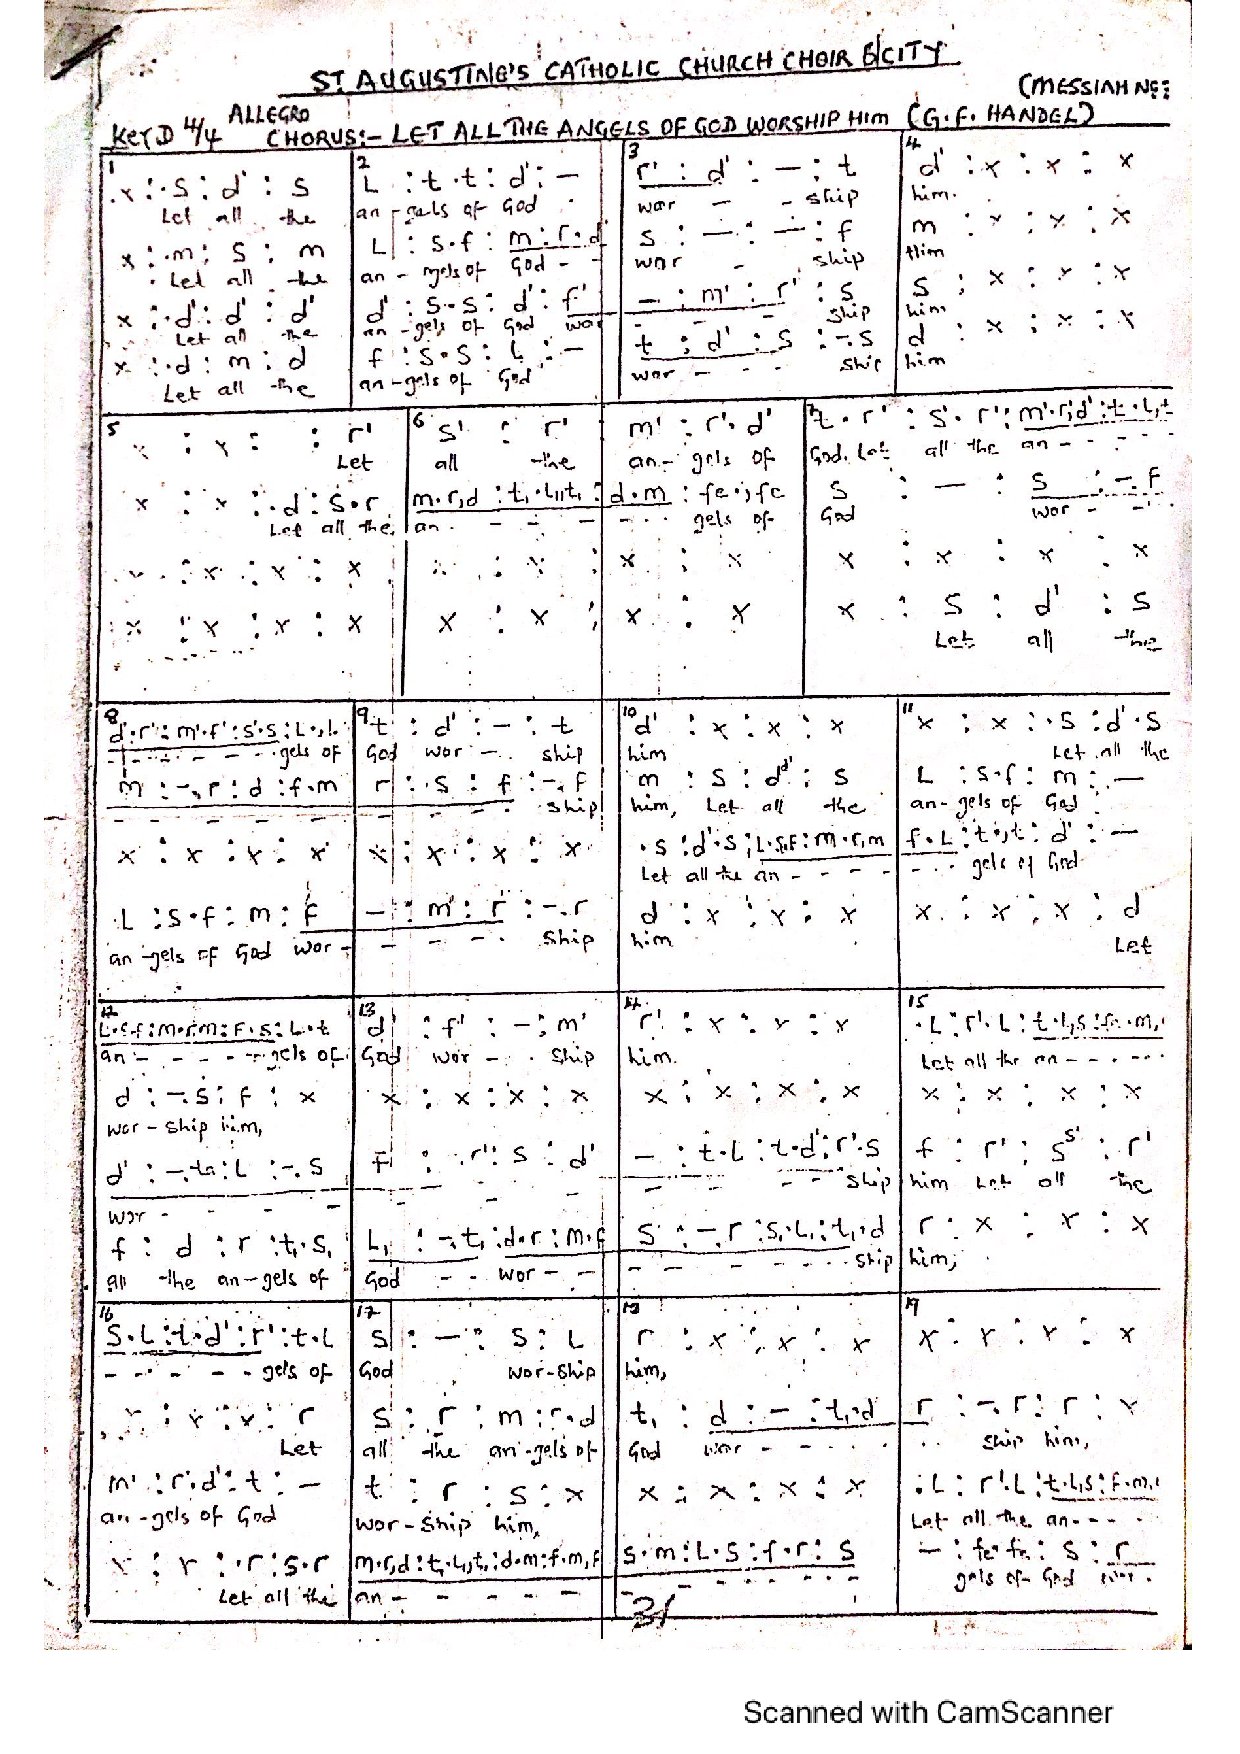 ST. AUGUSTINE'S CATHOLIC CHURCH CHOIR B/CITY
(MESSIAH NO:
ALLEGRO
Key D 4/4 CHORUS:- LET ALL THE ANGELS OF GOD WORSHIP HIM (G.F. HANDEL)
1 2 3 4
x : . s : d' : s L : t . t : d' : — r' : d' : — : t d' : x : x : x
Let all the an-gels of God wor - - ship him.
x : . m : s : m L : s . f : m : r . d s : — : — : f m : x : x : x
Let all the an-gels of God - - wor - ship Him
x : . d' : d' : d' d' : s . s : d' : f' — : m' : r' : s s : x : x : x
Let all the an-gels of God wor ship him
x : . d : m : d f : s . s : L : — t : d' : s : - . s d : x : x : x
Let all the an-gels of God wor - - - ship him
5 6 7
x : x : : r' s' : r' m' : r' . d' t . r' : s' . r' : m' . r', d' : t . L, t
Let all the an-gels of God. Let all the an - - - -
x : x : . d : s . r m . r, d : t, . L, t, : d . m : fe . , fe s : — : s : - . f
Let all the an - - - - - - gels of God wor - - -
x : x : x : x x : x : x : x x : x : x : x
x : x : x : x x : x : x : x x : s : d' : s
Let all the
8 9 10 11
d' . r' : m' . f' : s' . s : L . , L t : d' : — : t d' : x : x : x x : x : . s : d' . s
- - - - - gels of God wor - ship him Let all the
m : - . r : d : f . m r : . s : f : - . f m : s : d' : s L : s . f : m : —
- - - - - ship him, Let all the an-gels of God
x : x : x : x x : x : x : x . s : d' . s : L . s, f : m . r, m f . L : t . , t : d' : —
Let all the an - - - - - - - gels of God
L : s . f : m : f — : m' : r' : - . r d : x : x : x x : x : x : d
an-gels of God wor - - - - - ship him Let
12 13 14 15
L . s, f : m . r, m : f . s : L . t d' : f' : — : m' r' : x : x : x . L : r' . L : t . L, s : f . m,
an - - - - - gels of God wor - . ship him. Let all the an - - - - -
d : - . s : f : x x : x : x : x x : x : x : x x : x : x : x
wor-ship him,
d' : - . ta : L : - . s f : . r' : s : d' — : t . L : t . d' : r' . s f : r' : s' : r'
wor - - - - - - - - - - - - ship him Let all the
f : d : r : t, . s, L, : - . t, : d . r : m . f s : - . r : s, . L, : t, . d r : x : x : x
all the an-gels of God - - wor - - - - - - - - ship him,
16 17 18 19
s . L : t . d' : r' : t . L s : — : s : L r : x : x : x x : x : x : x
- - - - - gels of God wor-ship him,
x : x : x : r s : r : m : r . d t, : d : — : t, . d r : - . r : r : x
Let all the an-gels of God wor - - - - ship him,
m' : r' . d' : t : — t : r : s : x x : x : x : x . L : r' . L : t . L, s : f . m,
an-gels of God wor-ship him, Let all the an - - - -
x : x : . r : s . r m . r, d : t, . L, t, : d . m : f . m, f s . m : L . s : f . r : s — : fe . fe : s : r
Let all the an - - - - - - - - - - - gels of God wor.
31
Scanned with CamScanner